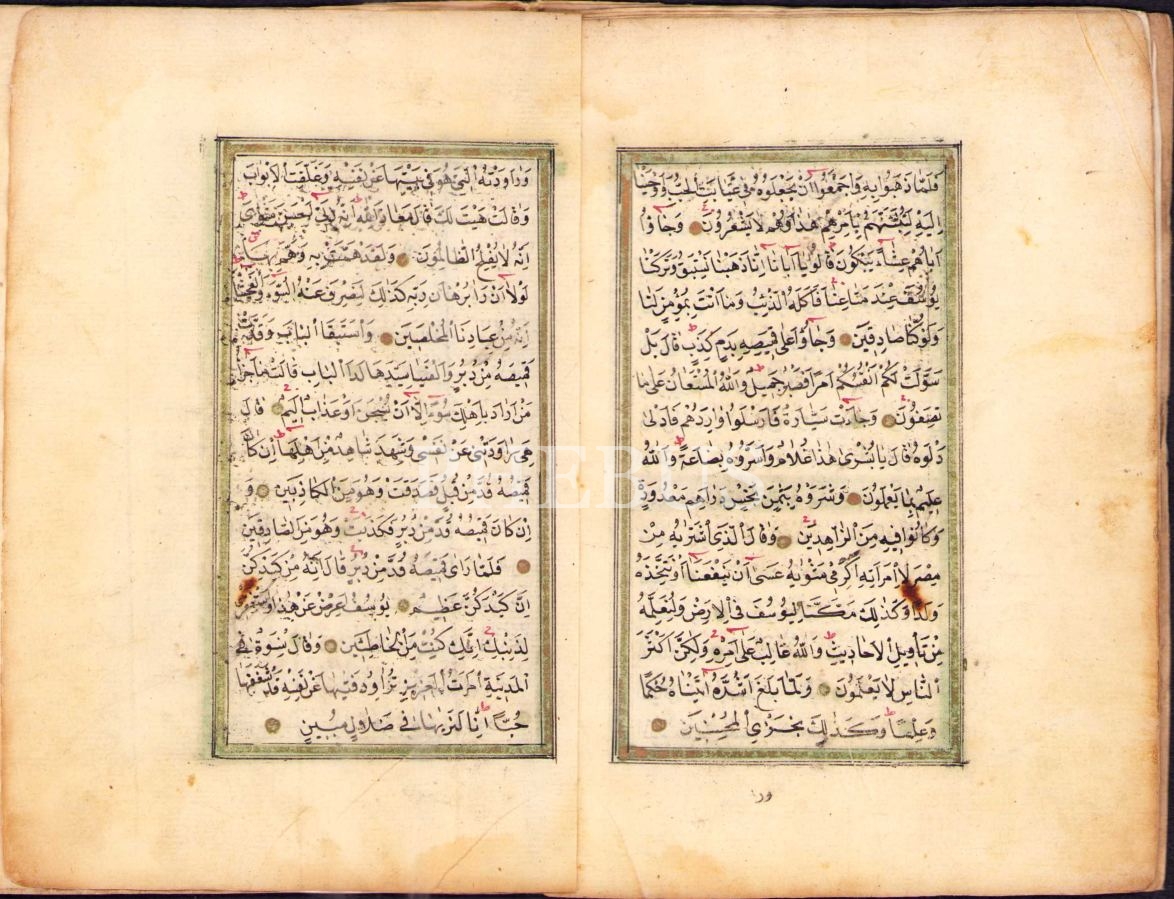 فَلَمَّا ذَهَبُوا بِهِ وَاَجْمَعُوا اَنْ يَجْعَلُوهُ فِي غَيَابَتِ الْجُبِّ وَاَوْحَيْنَا
اِلَيْهِ لَتُنَبِّئَنَّهُمْ بِاَمْرِهِمْ هٰذَا وَهُمْ لَا يَشْعُرُونَ وَجَاؤُا
اَبَاهُمْ عِشَاءً يَبْكُونَ قَالُوا يَا اَبَانَا اِنَّا ذَهَبْنَا نَسْتَبِقُ وَتَرَكْنَا
يُوسُفَ عِنْدَ مَتَاعِنَا فَاَكَلَهُ الذِّئْبُ وَمَا اَنْتَ بِمُؤْمِنٍ لَنَا
وَلَوْ كُنَّا صَادِقِينَ وَجَاؤُا عَلٰى قَمِيصِهِ بِدَمٍ كَذِبٍ قَالَ بَلْ
سَوَّلَتْ لَكُمْ اَنْفُسُكُمْ اَمْرًا فَصَبْرٌ جَمِيلٌ وَاللّٰهُ الْمُسْتَعَانُ عَلٰى مَا
تَصِفُونَ وَجَاءَتْ سَيَّارَةٌ فَاَرْسَلُوا وَارِدَهُمْ فَاَدْلٰى
دَلْوَهُ قَالَ يَا بُشْرٰى هٰذَا غُلَامٌ وَاَسَرُّوهُ بِضَاعَةً وَاللّٰهُ
عَلِيمٌ بِمَا يَعْمَلُونَ وَشَرَوْهُ بِثَمَنٍ بَخْسٍ دَرَاهِمَ مَعْدُودَةٍ
وَكَانُوا فِيهِ مِنَ الزَّاهِدِينَ وَقَالَ الَّذِي اشْتَرٰيهُ مِنْ
مِصْرَ لِامْرَاَتِهِ اَكْرِمِي مَثْوٰيهُ عَسٰى اَنْ يَنْفَعَنَا اَوْ نَتَّخِذَهُ
وَلَدًا وَكَذٰلِكَ مَكَّنَّا لِيُوسُفَ فِي الْاَرْضِ وَلِنُعَلِّمَهُ
مِنْ تَأْوِيلِ الْاَحَادِيثِ وَاللّٰهُ غَالِبٌ عَلٰى اَمْرِهِ وَلٰكِنَّ اَكْثَرَ
النَّاسِ لَا يَعْلَمُونَ وَلَمَّا بَلَغَ اَشُدَّهُ اٰتَيْنَاهُ حُكْمًا
وَعِلْمًا وَكَذٰلِكَ نَجْزِي الْمُحْسِنِينَ
ور
وَرَاوَدَتْهُ الَّتِي هُوَ فِي بَيْتِهَا عَنْ نَفْسِهِ وَغَلَّقَتِ الْاَبْوَابَ
وَقَالَتْ هَيْتَ لَكَ قَالَ مَعَاذَ اللّٰهِ اِنَّهُ رَبِّي اَحْسَنَ مَثْوَايَ
اِنَّهُ لَا يُفْلِحُ الظَّالِمُونَ وَلَقَدْ هَمَّتْ بِهِ وَهَمَّ بِهَا
لَوْلَا اَنْ رَاٰ بُرْهَانَ رَبِّهِ كَذٰلِكَ لِنَصْرِفَ عَنْهُ السُّوءَ وَالْفَحْشَاءَ
اِنَّهُ مِنْ عِبَادِنَا الْمُخْلَصِينَ وَاسْتَبَقَا الْبَابَ وَقَدَّتْ
قَمِيصَهُ مِنْ دُبُرٍ وَاَلْفَيَا سَيِّدَهَا لَدَا الْبَابِ قَالَتْ مَا جَزَاءُ
مَنْ اَرَادَ بِاَهْلِكَ سُوءًا اِلَّا اَنْ يُسْجَنَ اَوْ عَذَابٌ اَلِيمٌ قَالَ
هِيَ رَاوَدَتْنِي عَنْ نَفْسِي وَشَهِدَ شَاهِدٌ مِنْ اَهْلِهَا اِنْ كَانَ
قَمِيصُهُ قُدَّ مِنْ قُبُلٍ فَصَدَقَتْ وَهُوَ مِنَ الْكَاذِبِينَ وَ
اِنْ كَانَ قَمِيصُهُ قُدَّ مِنْ دُبُرٍ فَكَذَبَتْ وَهُوَ مِنَ الصَّادِقِينَ
فَلَمَّا رَاٰى قَمِيصَهُ قُدَّ مِنْ دُبُرٍ قَالَ اِنَّهُ مِنْ كَيْدِكُنَّ
اِنَّ كَيْدَكُنَّ عَظِيمٌ يُوسُفُ اَعْرِضْ عَنْ هٰذَا وَاسْتَغْفِرِي
لِذَنْبِكِ اِنَّكِ كُنْتِ مِنَ الْخَاطِئِينَ وَقَالَ نِسْوَةٌ فِي
الْمَدِينَةِ امْرَاَتُ الْعَزِيزِ تُرَاوِدُ فَتٰيهَا عَنْ نَفْسِهِ قَدْ شَغَفَهَا
حُبًّا اِنَّا لَنَرٰيهَا فِي ضَلَالٍ مُبِينٍ